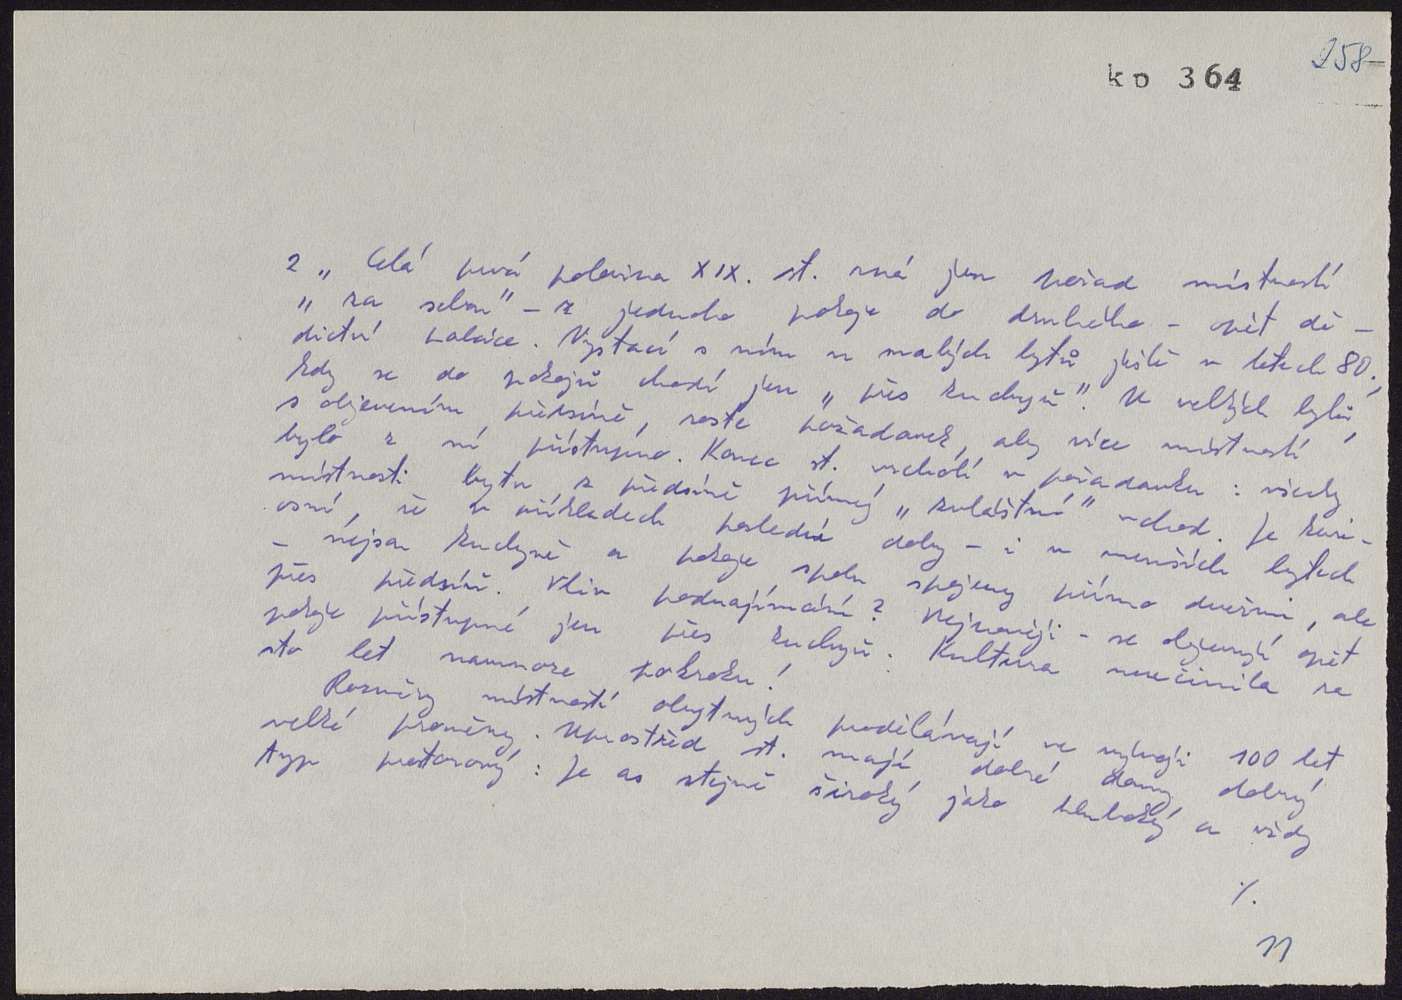 258
kp 364
2 „ Celá prvá polovina XIX. st. zná jen pořad místností
„ za sebou" – z jednoho pokoje do druhého – opět dě–
dictví paláce. Vystačí s ním u malých bytů ještě v letech 80.,
kdy se do pokojů chodí jen „ přes kuchyň". U velkých bytů,
s objevením předsíně, roste požadavek, aby více místností
bylo z ní přístupno. Konec st. vrcholí v požadavku : všechny
místnosti bytu z předsíně přímý „ zvláštní" vchod. Je kuri–
osní, že v příkladech poslední doby – i v menších bytech
– nejsou kuchyně a pokoje spolu spojeny přímo dveřmi, ale
přes předsíň. Vliv podnajímání? Nejnověji – se objevují opět
pokoje přístupné jen přes kuchyň. Kultura neučinila za
sto let namnoze pokroku!
Rozměry místností obytných prodělávají ve vývoji 100 let
velké proměny. Uprostřed st. mají dobré domy dobrý
typ prostorový : je as stejně široký jako hluboký a vždy
./.
11